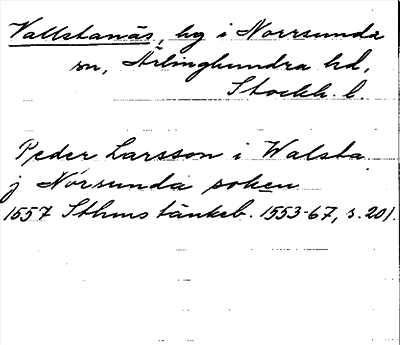 Vallstanäs, hg i Norrsunda
sn, Ärlinghundra hd,
Stockh. l.
Peder Larsson i Walsta
j Norsunda soken
1557 Sthms tänkeb. 1553-67, s. 201.